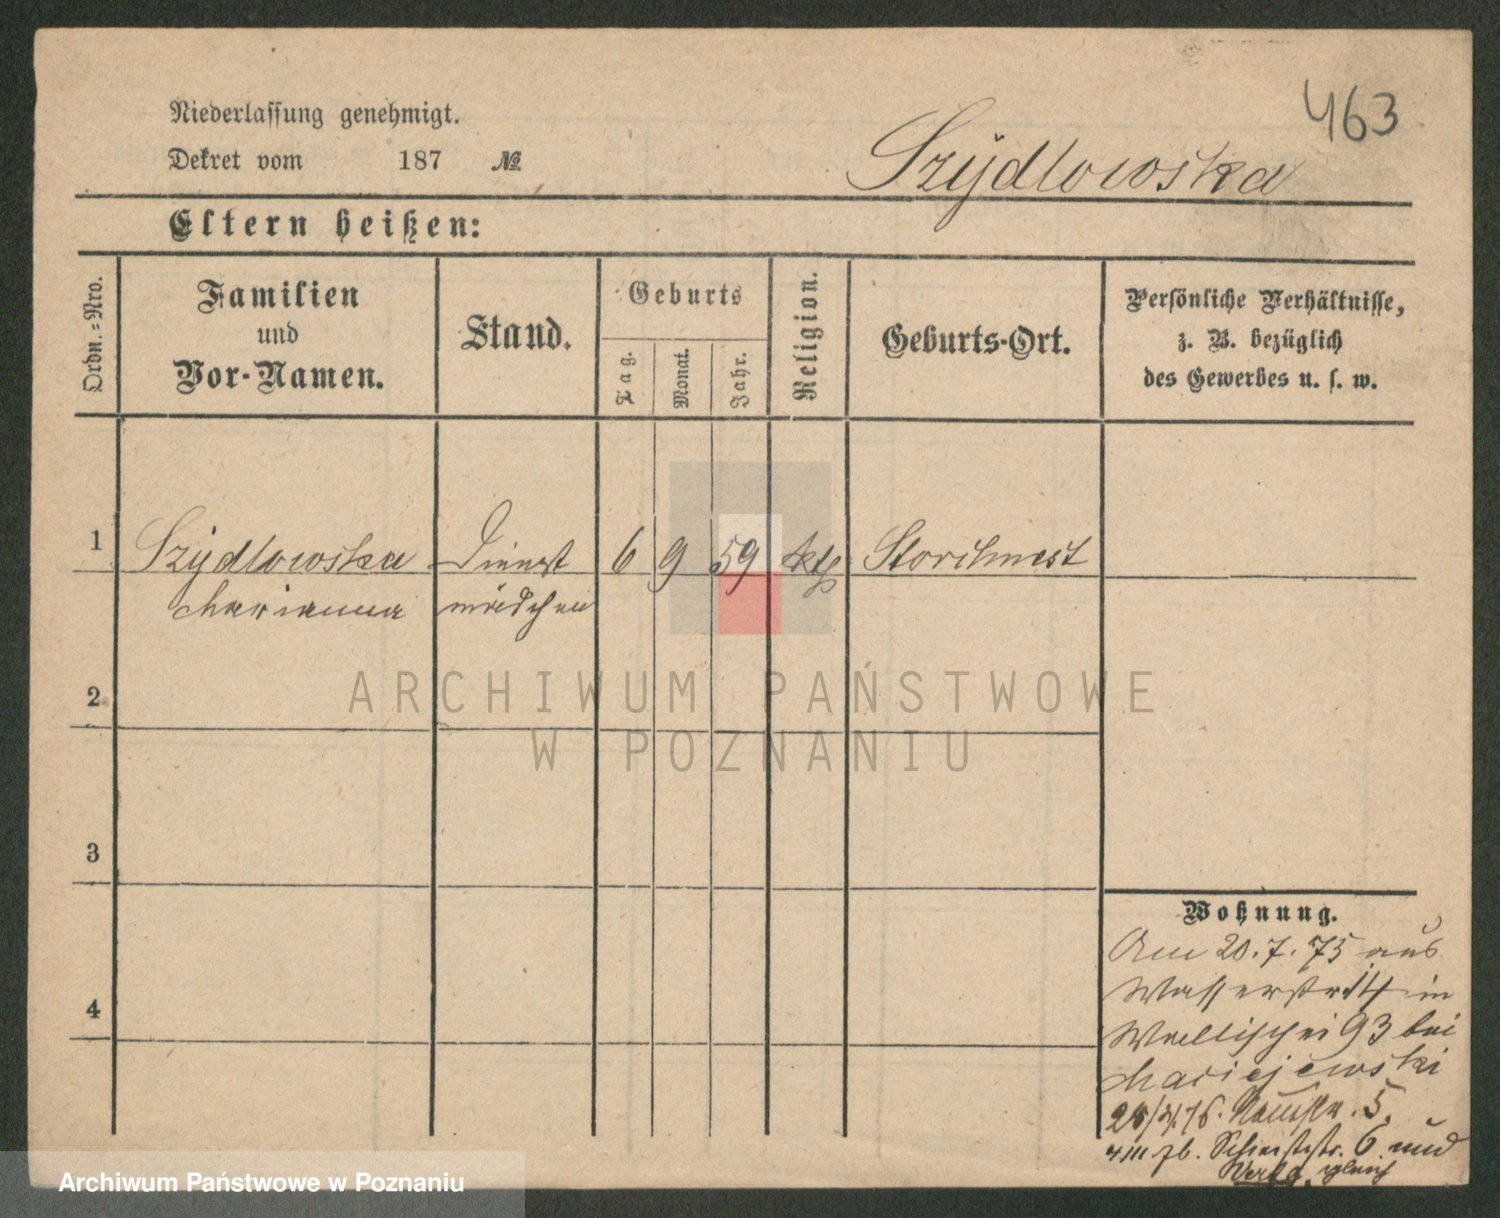 463
Niederlassung genehmigt.
Dekret vom 187 №
Szydlowska
Eltern heißen:
Ordn.=Nro.
Familien
und
Vor-Namen.
Stand.
Geburts
Tag.
Monat.
Jahr.
Religion.
Geburts-Ort.
Persönliche Verhältnisse,
z. B. bezüglich
des Gewerbes u. s. w.
1 Szydlowska Dienst 6 9 59 kth Storchnest
Marianna mädchen
2
ARCHIWUM PAŃSTWOWE
W POZNANIU
3
Wohnung.
Am 20.7.75 aus
4
Wasserstr. 14 in
Wallischei 93 bei
Maciejewski
76. 5.
6 und
Archiwum Państwowe w Poznaniu